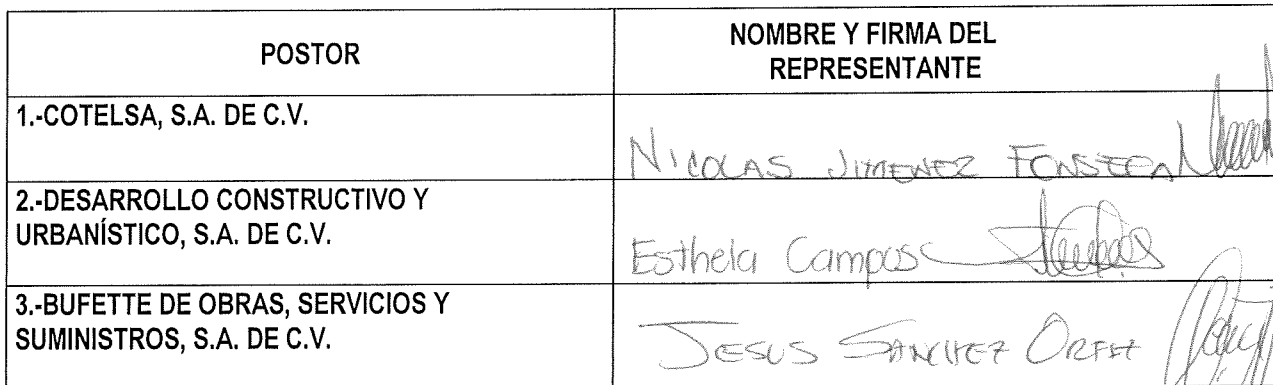 POSTOR
NOMBRE Y FIRMA DEL
REPRESENTANTE
1.-COTELSA, S.A. DE C.V.
NICOLAS JIMENEZ FONSECA
2.-DESARROLLO CONSTRUCTIVO Y
URBANÍSTICO, S.A. DE C.V.
Esthela Campos
3.-BUFETTE DE OBRAS, SERVICIOS Y
SUMINISTROS, S.A. DE C.V.
JESUS SANCHEZ